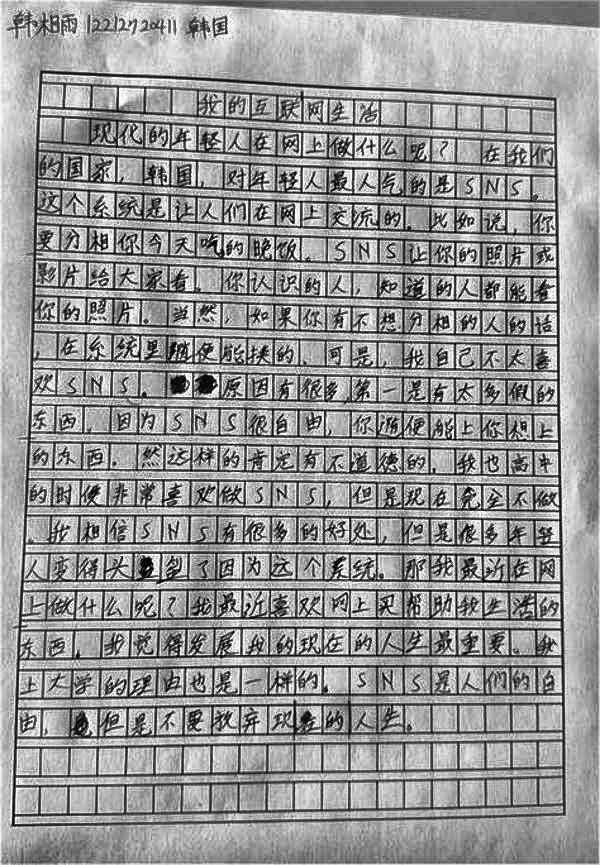 韩相雨 12212720411 韩国
我的互联网生活
现代的年轻人在网上做什么呢？ 在我们
的国家，韩国，对年轻人最人气的是SNS。
这个系统是让人们在网上交流的。比如说，你
要分相你今天吃的晚饭。SNS让你的照片或
影片给大家看。你认识的人，知道的人都能看
你的照片。当然，如果你有不想分相的人的话
，在系统里随便能挨的。可是，我自己不太喜
欢SNS。原因有很多，第一是有太多假的
东西，因为SNS很自由，你随便能上你想上
的东西。然这样的肯定有不道德的，我也高中
的时候非常喜欢做SNS，但是现在完全不做
。我相信SNS有很多的好处，但是很多年轻
人变得头 了因为这个系统。那我最近在网
上做什么呢？我最近喜欢网上买帮助我生活的
东西，我觉得发展我的现在的人生最重要。我
上大学的理由也是一样的。SNS是人们的自
由，但是不要放弃现在的人生。